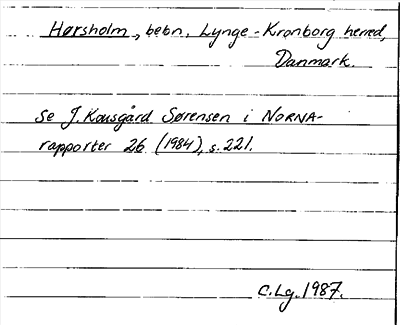 Hørsholm, bebn. Lynge-Kronborg herred,
Danmark.
Se J. Kousgård Sørensen i NORNA-
rapporter 26 (1984), s. 221.
C.Lg. 1987.